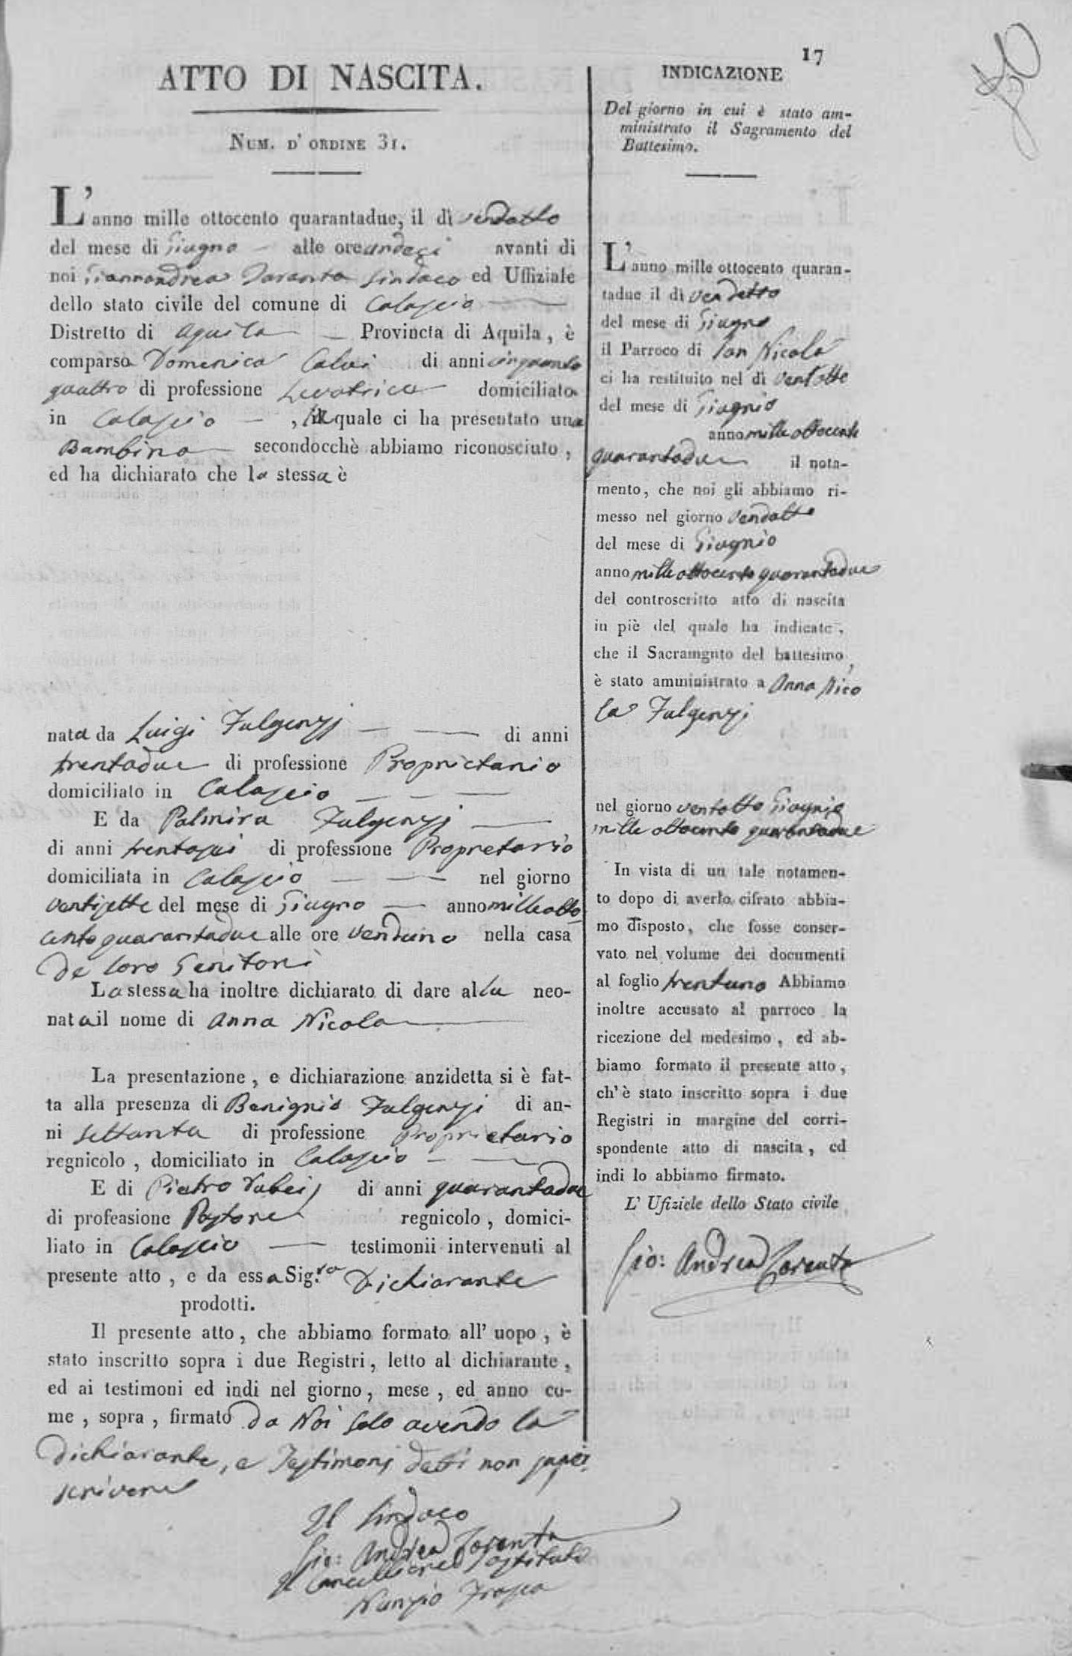 17
ATTO DI NASCITA.
NUM. D' ORDINE 31.
L'anno mille ottocento quarantadue, il dì vendotto
del mese di Giugno — alle ore undeci avanti di
noi Giannandrea Taranta Sindaco ed Uffiziale
dello stato civile del comune di Calascio —
Distretto di Aquila — Provincia di Aquila, è
comparsa Domenica di anni cinquanta
quattro di professione Levatrice domiciliata
in Calascio — , la quale ci ha presentato una
Bambina — secondocchè abbiamo riconosciuto,
ed ha dichiarato che la stessa è
nata da Luigi Fulgenzj — — di anni
trentadue di professione Proprietario
domiciliato in Calascio — — —
E da Palmira Fulgenzj —
di anni trentasei di professione Proprietario
domiciliata in Calascio — — — nel giorno
ventisette del mese di Giugno — anno mille otto
cento quarantadue alle ore venduno nella casa
de loro Genitori
La stessa ha inoltre dichiarato di dare alla neo-
nata il nome di Anna Nicola —
La presentazione, e dichiarazione anzidetta si è fat-
ta alla presenza di Benignio Fulgenzj di an-
ni settanta di professione Proprietario
regnicolo, domiciliato in Calascio — —
E di Pietro di anni quarantadue
di profeasione Pastore regnicolo, domici-
liato in Calascio — testimonii intervenuti al
presente atto, e da essa Sig.ra Dichiarante
prodotti.
Il presente atto, che abbiamo formato all' uopo, è
stato inscritto sopra i due Registri, letto al dichiarante,
ed ai testimoni ed indi nel giorno, mese, ed anno co-
me, sopra, firmato da Noi solo avendo la
dichiarante, e Testimonj detti non saper
scrivere
Il Sindaco
Gio: Andrea Taranta
Il Cancelliere Sostituto
Nunzio Frasca
INDICAZIONE
Del giorno in cui è stato am-
ministrato il Sagramento del
Battesimo.
L'anno mille ottocento quaran-
tadue il dì vendotto
del mese di Giugno
il Parroco di San Nicola
ci ha restituito nel dì ventotto
del mese di Giugnio
anno mille ottocento
quarantadue il nota-
mento, che noi gli abbiamo ri-
messo nel giorno vendotto
del mese di Giugnio
anno mille ottocento quarantadue
del controscritto atto di nascita
in piè del quale ha indicato,
che il Sacramgnto del battesimo,
è stato amministrato a Anna Nico
la Fulgenzj
nel giorno ventotto Giugnio
mille ottocento quarantadue
In vista di un tale notamen-
to dopo di averlo cifrato abbia-
mo disposto, che fosse conser-
vato nel volume dei documenti
al foglio trentuno Abbiamo
inoltre accusato al parroco la
ricezione del medesimo, ed ab-
biamo formato il presente atto,
ch' è stato inscritto sopra i due
Registri in margine del corri-
spondente atto di nascita, ed
indi lo abbiamo firmato.
L' Ufiziele dello Stato civile
Gio: Andrea Taranta